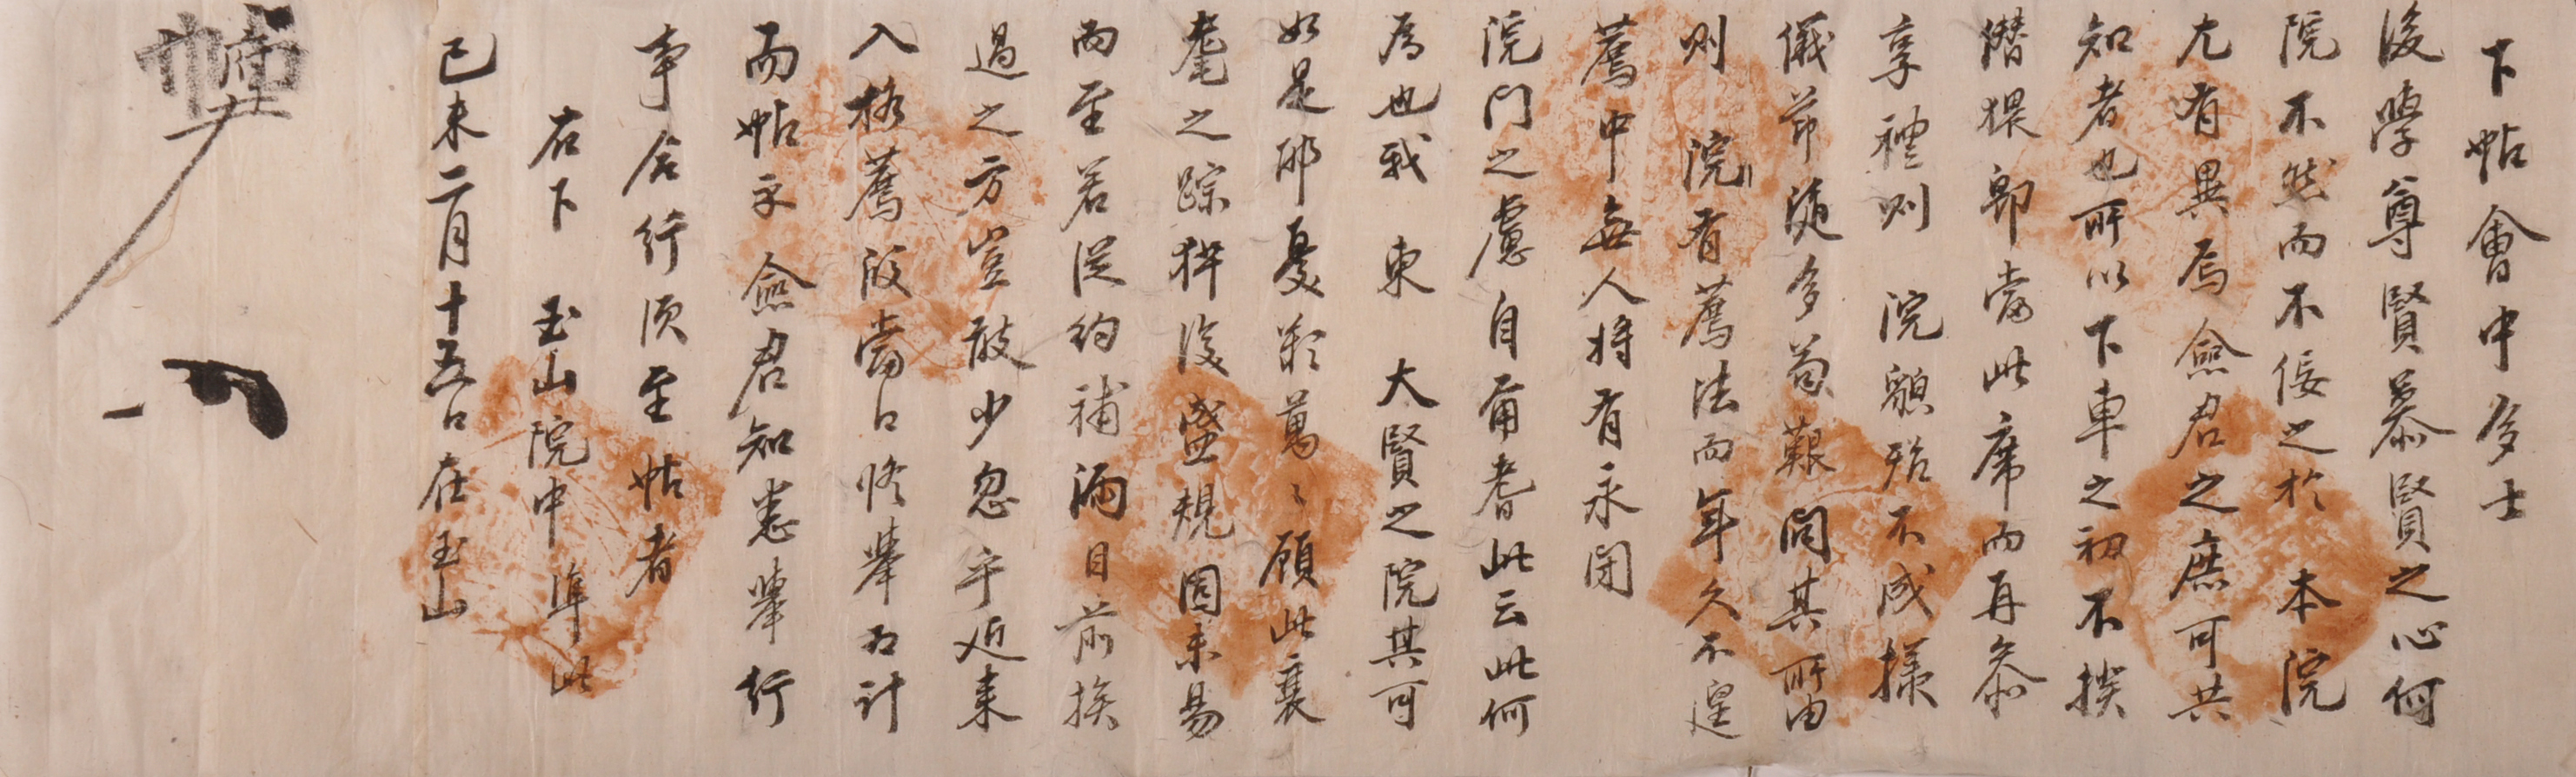 下帖會中多士
後學尊賢慕賢之心何
院不然而不佞之於 本院
尤有異焉僉君之庶可共
知者也所以下車之初不揆
潛猥卽當此席而再參
享禮則 院貌殆不成樣
儀節隨多苟艱問其所由
則 院有薦法而年久不遑
薦中無人將有永閉
院門之慮自甫耆此云此何
爲也我 東 大賢之院其可
如是耶憂歎萬〻顧此衰
耄之踪猝復盛規固未易
而至若從約補漏目前挨
過之方豈敢少忽乎近來
入格薦啟當日修擧爲計
而帖示 僉君知悉擧行
事合行須至 帖者
右下 玉山院中 準此
己未二月十五日在玉山